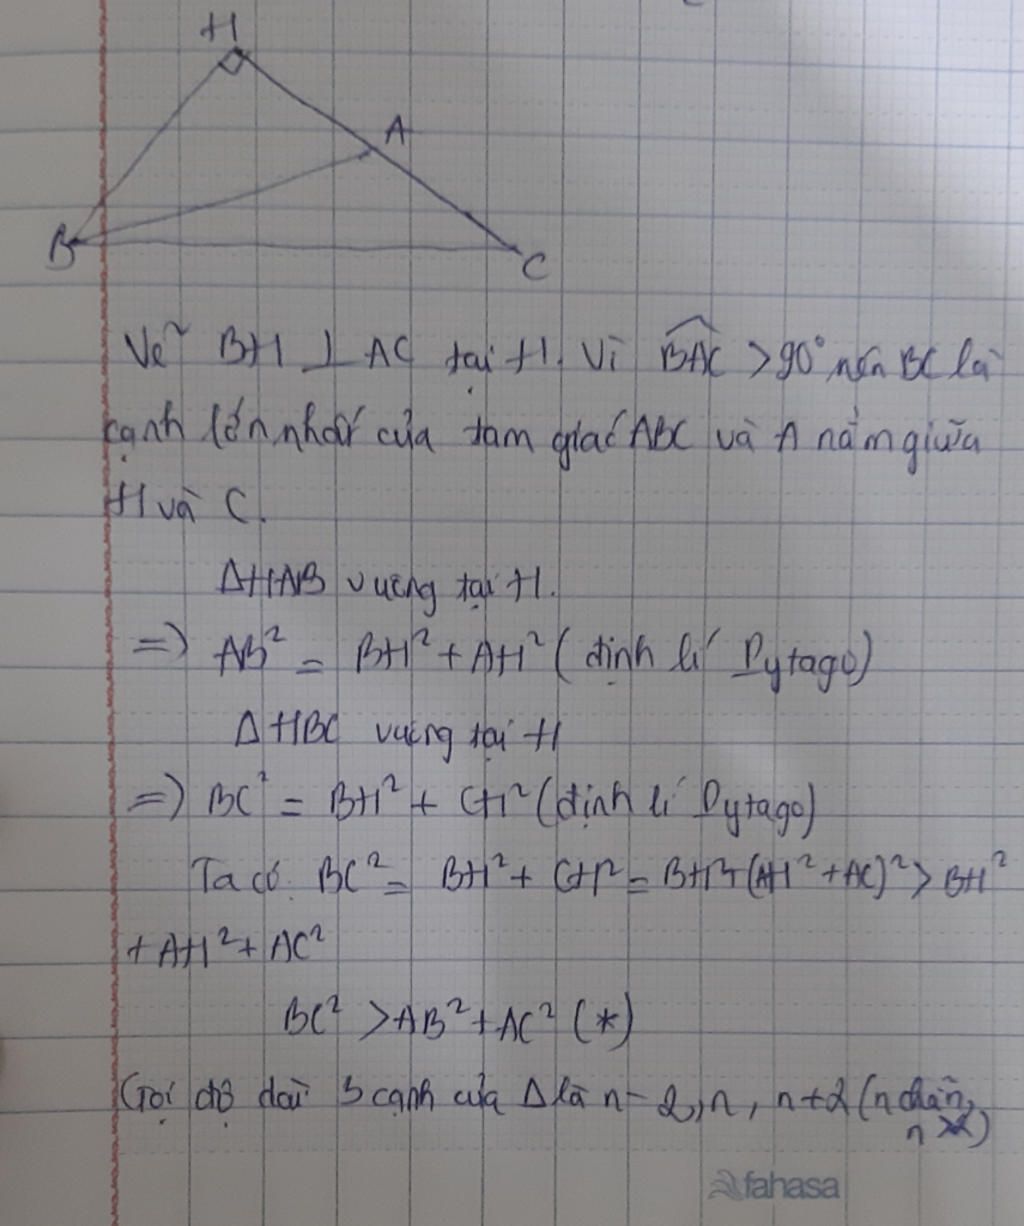 H
A
B
C
Vẽ BH ⊥ AC tại H. Vì BAC > 90° nên BC là
cạnh lớn nhất của tam giác ABC và A nằm giữa
H và C.
ΔHAB vuông tại H.
=) AB² = BH² + AH² (định lí Pytago)
ΔHBC vuông tại H
=) BC² = BH² + CH² (định lí Pytago)
Ta có: BC² = BH² + CH² = BH² + (AH² + AC)² > BH²
+ AH² + AC²
BC² > AB² + AC² (*)
Gọi độ dài 3 cạnh của Δ là n - 2, n, n + 2 (n chẵn,
n
fahasa